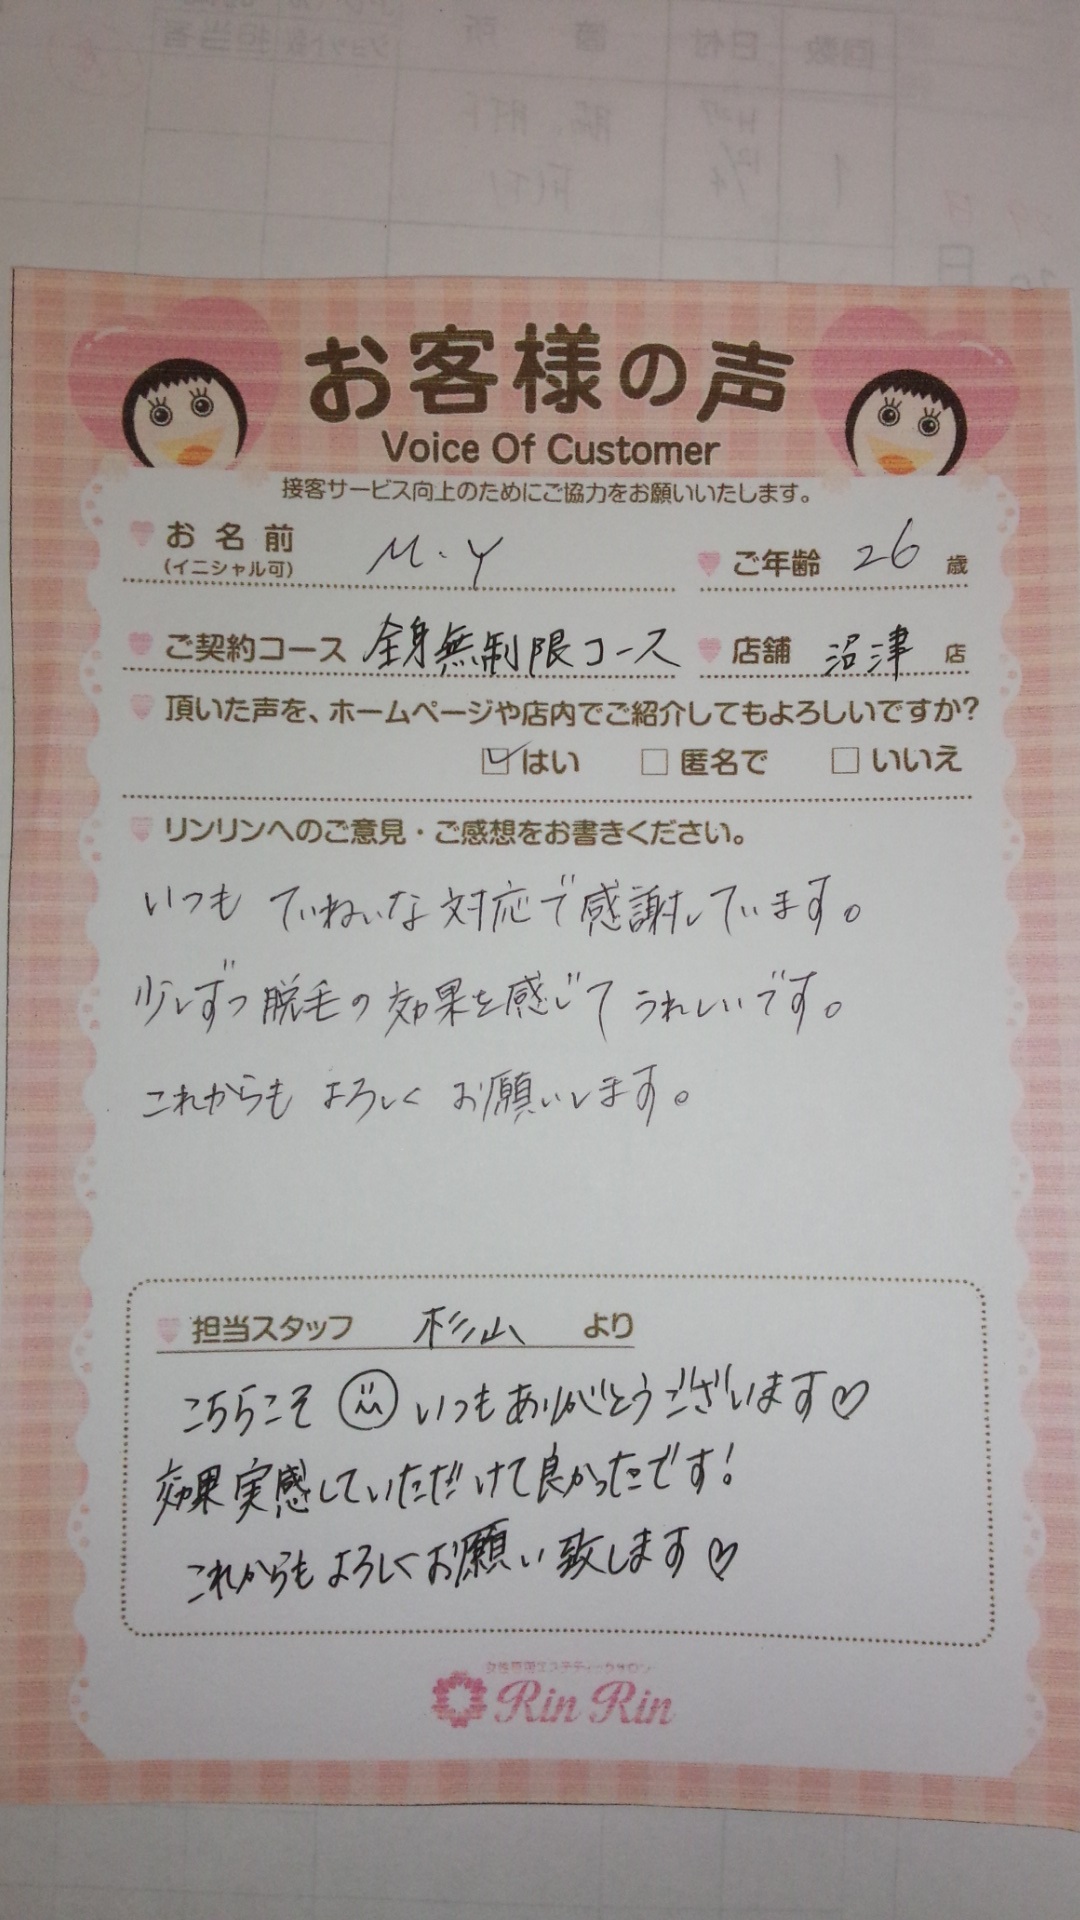 お客様の声
Voice Of Customer
接客サービス向上のためにご協力をお願いいたします。
お名前 M.Y ご年齢 26 歳
(イニシャル可)
ご契約コース 全身無制限コース 店舗 沼津 店
頂いた声を、ホームページや店内でご紹介してもよろしいですか?
はい 匿名で いいえ
リンリンへのご意見・ご感想をお書きください。
いつも ていねいな対応で感謝しています。
少しずつ脱毛の効果を感じて うれしいです。
これからも よろしく お願いします。
担当スタッフ 杉山 より
こちらこそ いつもありがとうございます♡
効果実感していただけて良かったです!
これからもよろしくお願い致します♡
女性専用エステティックサロン
Rin Rin